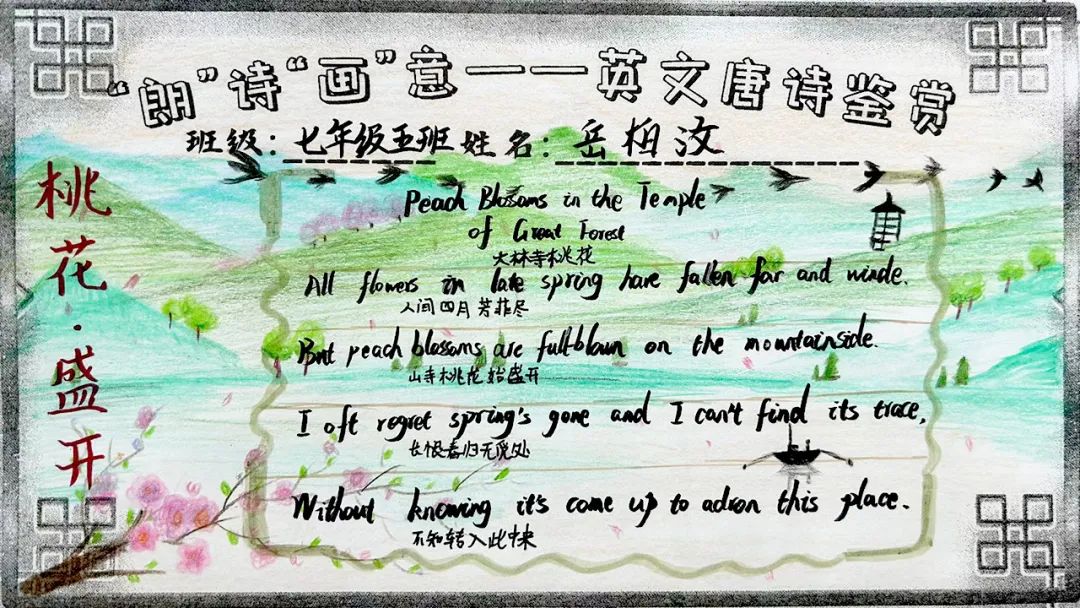 “朗”诗“画”意——英文唐诗鉴赏
班级:七年级五班 姓名:岳柏汶
桃花·盛开
Peach Blossoms in the Temple
of Great Forest
大林寺桃花
All flowers in late spring have fallen far and winde.
人间四月芳菲尽
But peach blossoms are full-blown on the mountainside.
山寺桃花始盛开
I oft regret spring's gone and I can't find its trace,
长恨春归无觅处
Without knowing it's come up to adron this place.
不知转入此中来